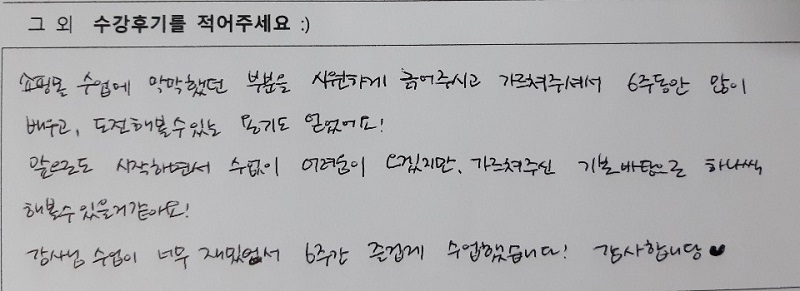 그 외 수강후기를 적어주세요 :)
쇼핑몰 수업에 막막했던 부분을 시원하게 긁어주시고 가르쳐주셔서 6주동안 많이
배우고, 도전해볼수있는 용기도 얻었어요!
앞으로도 시작하면서 수없이 어려움이 오겠지만, 가르쳐주신 기본바탕으로 하나씩
해볼수있을거같아요!
강사님 수업이 너무 재밌었어서 6주간 즐겁게 수업했습니다! 감사합니당♥